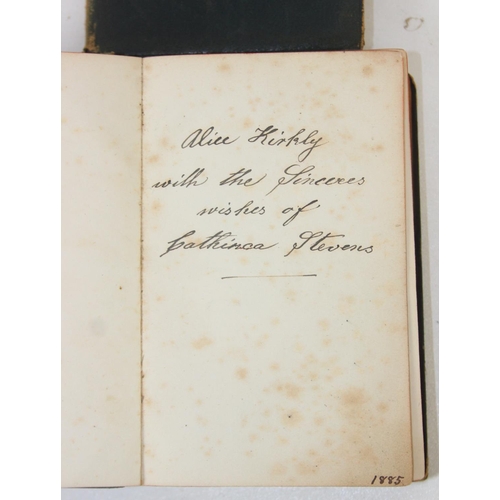 Alice Kirkly
with the Sinceres
wishes of
Cathinca Stevens
1885